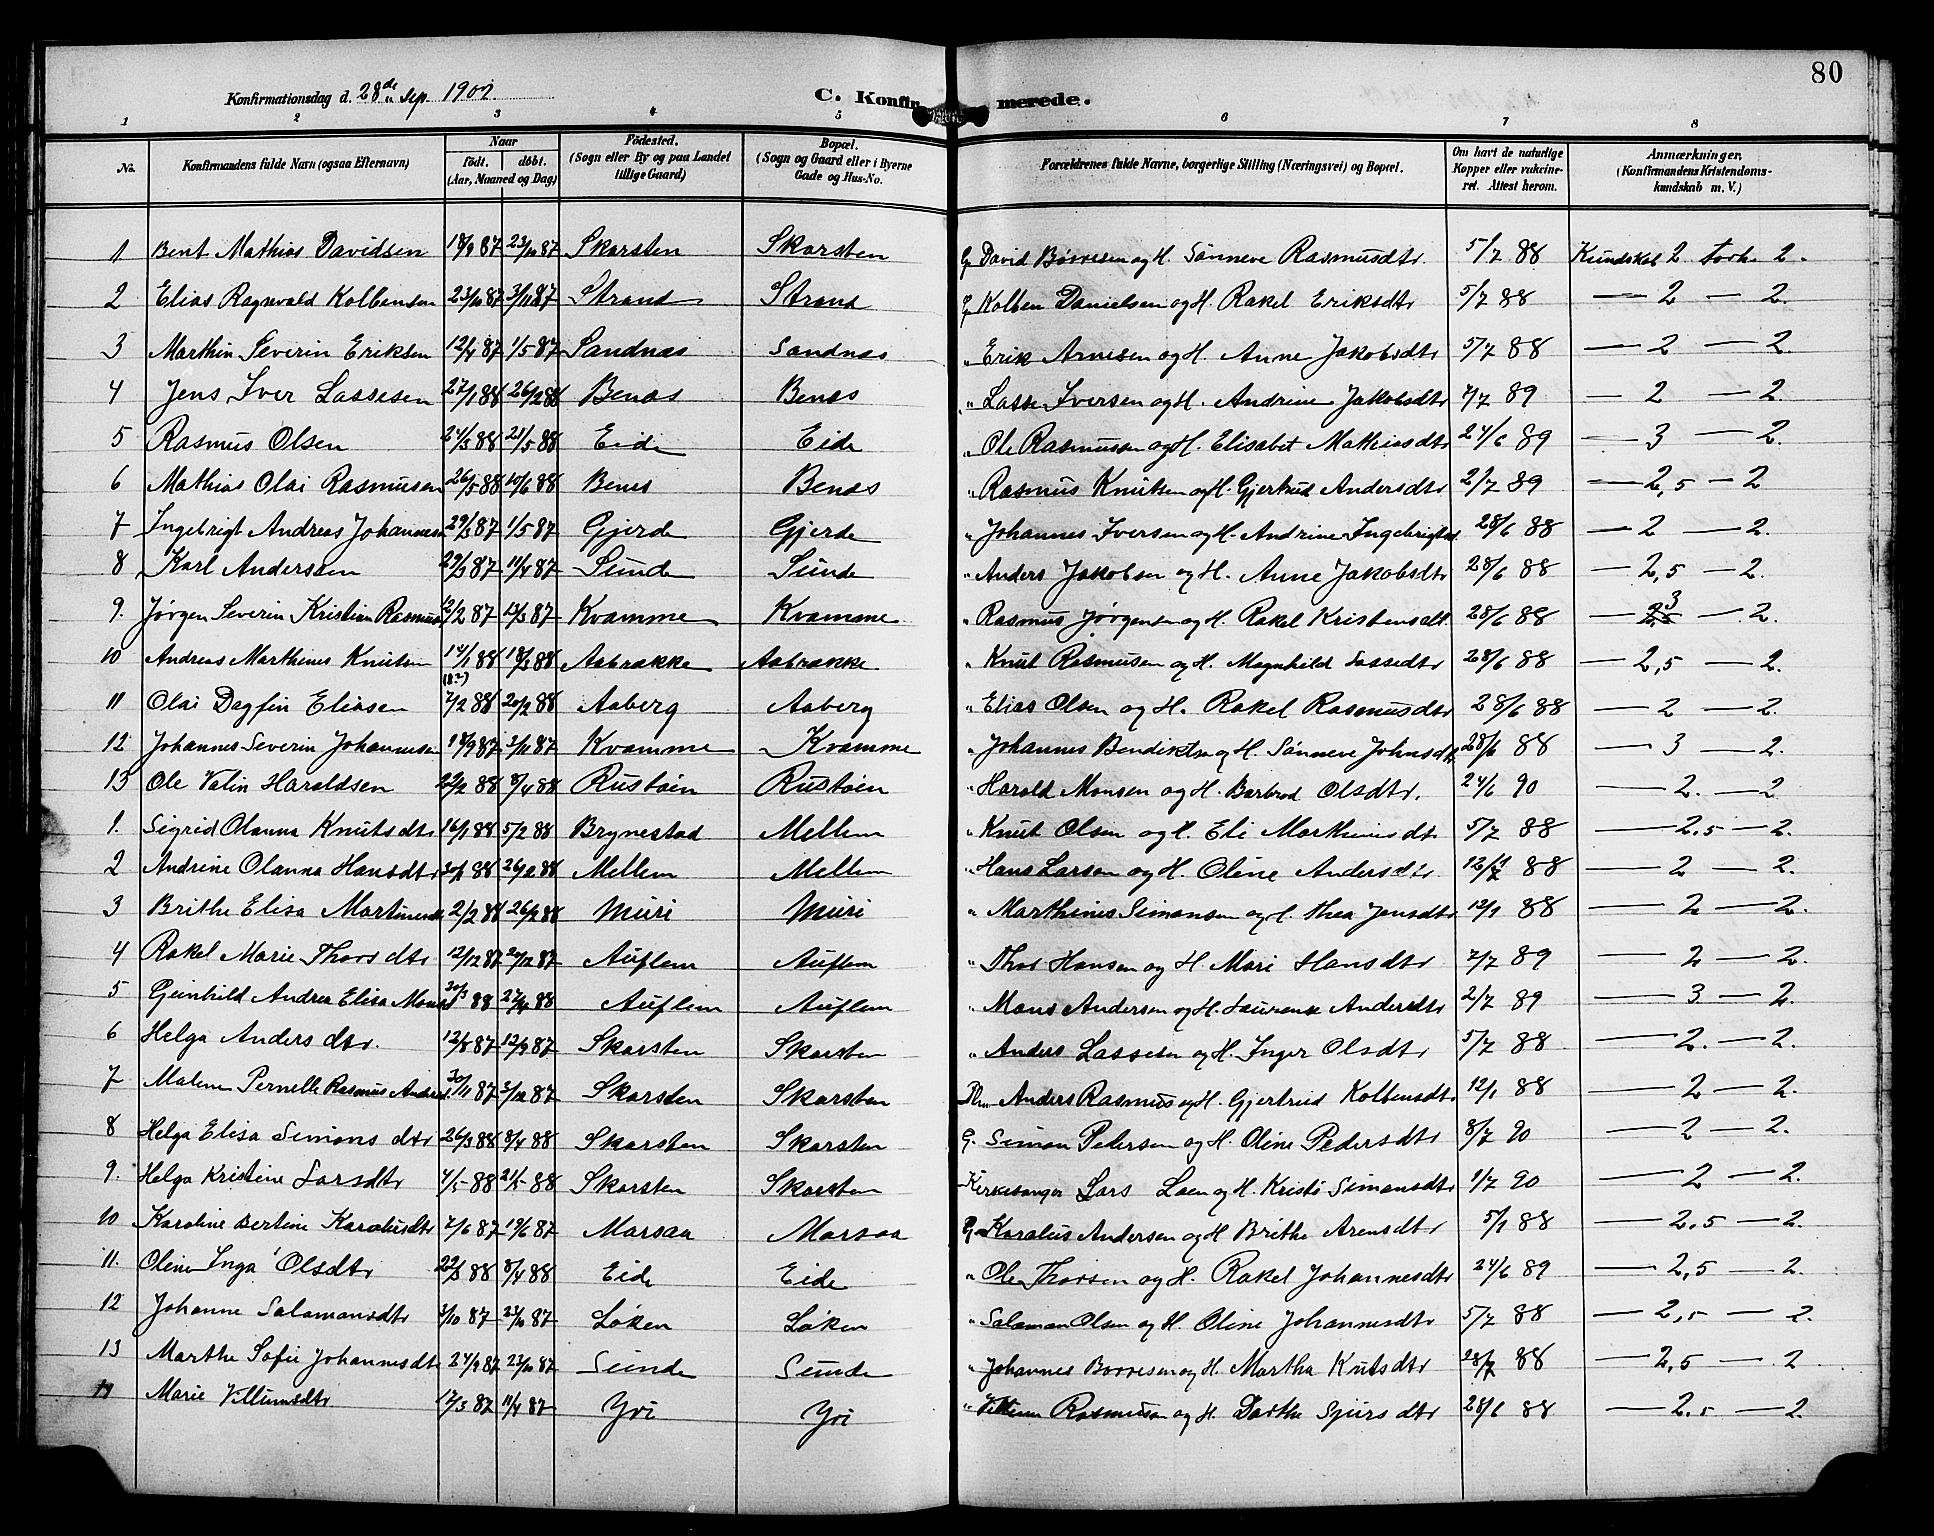 80
Konfirmationsdag d. 28de Sep. 1902.
C. Konfirmerede.
1 2 3 4 5 6 7 8
No. Konfirmandens fulde Navn (ogsaa Efternavn) Naar født. døbt. (Aar, Maaned og Dag) Fødested. (Sogn eller By og paa Landet tillige Gaard) Bopæl. (Sogn og Gaard eller i Byerne Gade og Hus-No. Forældrenes fulde Navne, borgerlige Stilling (Næringsvei) og Bopæl. Om havt de naturlige Kopper eller vakcineret. Attest herom. Anmærkninger. (Konfirmandens Kristendomskundskab m. V.)
1 Bent Mathias Davidsen 18/9 87 23/10 87 Skarsten Skarsten G. David Børresen og H. Sønneve Rasmusdtr 5/7 88 Kundskab 2 Forh. 2.
2 Elias Ragnvald Kolbensen 23/10 87 3/11 87 Strand Strand G. Kolben Danielsen og H. Rakel Eriksdtr 5/7 88 — 2 — 2.
3 Marthin Severin Eriksen 12/4 87 1/5 87 Sandnæs Sandnæs " Erik Arnesen og H. Anne Jakobsdtr 5/7 88 — 2 — 2.
4 Jens Iver Lassesen 27/1 88 26/2 88 Benæs Benæs " Lasse Iversen og H. Andrine Jakobsdtr 7/7 89 — 2 — 2.
5 Rasmus Olsen 24/3 88 21/5 88 Eide Eide " Ole Rasmussen og H. Elisabet Mathiasdtr 24/6 89 — 3 — 2.
6 Mathias Olai Rasmusen 26/5 88 10/6 88 Benes Benæs " Rasmus Knutsen og H. Gjertrud Andersdtr 2/7 89 — 2,5 — 2
7 Ingebrigt Andreas Johannesen 29/3 87 1/5 87 Gjerde Gjerde " Johannes Iversen og H. Andrine Ingebrigtsd. 28/6 88 — 2 — 2.
8 Karl Anderssen 29/3 87 11/4 87 Sunde Sunde " Anders Jakobsen og H. Anne Jakobsdtr 28/6 88 — 2,5 — 2.
9. Jørgen Severin Kristian Rasmus 12/2 87 13/3 87 Kvamme Kvamme " Rasmus Jørgensen og H. Rakel Kristensdt. 28/6 88 — 3 — 2.
10 Andreas Marthinus Knutsen 14/1 88 (18?) 18/3 88 Aabrække Aabrække " Knut Rasmusen og H. Magnhild Lassedtr 28/6 88 — 2,5 — 2.
11 Olai Dagfin Eliasen 7/2 88 20/2 88 Aaberg Aaberg " Elias Olsen og H. Rakel Rasmusdtr 28/6 88 — 2 — 2.
12 Johannes Severin Johannesen 18/9 87 3/11 87 Kvamme Kvamme " Johannes Bendiktsen og H. Sønneve Johnsdtr 28/6 88 — 3 — 2.
13 Ole Valin Haraldsen 22/2 88 8/4 88 Rustøen Rustøen " Harald Monsen og H. Barbrod Olsdtr. 24/6 90 — 2. — 2
1. Sigrid Olanna Knutsdtr 16/1 88 5/2 88 Brynestad Mellem " Knut Olsen og H. Eli Marthinusdtr 5/7 88 — 2,5 — 2.
2 Andrine Olanna Hansdtr 30/1 88 26/2 88 Mellem Mellem " Hans Larsen og H. Oline Andersdtr 12/7 88 — 2 — 2.
3 Brithe Elisa Martinusdtr 2/2 88 26/2 88 Muri Muri " Marthinus Simonsen og H. Thea Jensdtr 12/1 88 — 2 — 2.
4 Rakel Marie Thorsdtr 12/12 87 27/12 87 Auflem Auflem " Thor Hansen og H. Mari Hansdtr 7/7 89 — 2 — 2.
5 Geinhild Andrea Elisa Monsd 30/3 88 27/4 88 Auflem Auflem " Mons Andersen og H. Laurense Andersdtr 2/7 89 — 3 — 2.
6 Helga Andersdtr. 12/8 87 12/9 87 Skarsten Skarsten " Anders Lassesen og H. Inger Olsdtr 5/7 88 — 2. — 2.
7 Malene Pernelle Rasmus Andersd. 30/11 87 3/12 87 Skarsten Skarsten Plm Anders Rasmus og H. Gjertrud Kolbensdtr 12/1 88 — 2 — 2.
8 Helga Elisa Simonsdtr 26/3 88 8/4 88 Skarsten Skarsten G. Simon Petersen og H. Oline Pedersdtr 8/7 90 — 2 — 2.
9. Helga Kristine Larsdtr 4/5 88 21/5 88 Skarsten Skarsten Kirkesanger Lars Loen og H. Kristi Simonsdtr 1/7 90 — 2 — 2.
10 Karoline Bertine Karolusdtr 7/6 87 19/6 87 Marsaa Marsaa G. Karolus Andersen og H Brithe Arensdtr 5/1 88 — 2,5 — 2.
11. Oline Inga Olsdtr 22/3 88 8/4 88 Eide Eide " Ole Thorsen og H. Rakel Johannesdtr 24/6 89 — 2,5 — 2.
12 Johanne Salamonsdtr 3/10 87 23/10 87 Løken Løken " Salamon Olsen og H. Oline Johannesdtr 5/7 88 — 2,5 — 2.
13 Marthe Sofie Johannesdtr 24/9 87 23/10 87 Sunde Sunde " Johannes Borresen og H. Martha Knutsdtr 28/7 88 — 2,5 — 2
14 Marie Villumsdtr 17/3 87 11/4 87 Yri Yri " Villum Rasmusen og H. Dorthe Sjursdtr 28/6 88 — 2,5 — 2.